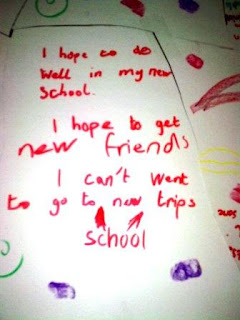 I hope to do
well in my new
school.
I hope to get
new friends
I can't went
to go to new trips
school